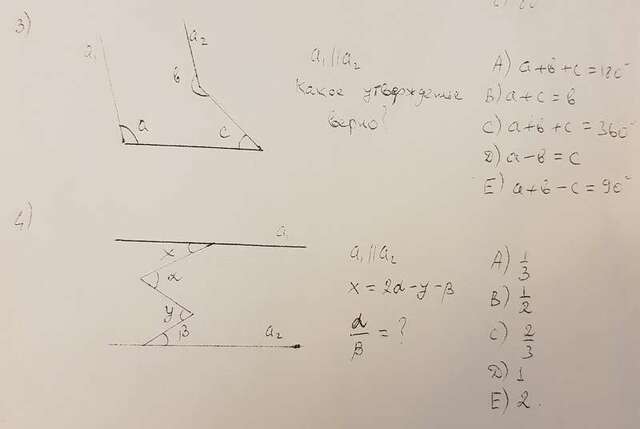 3)
a₁
a₂
в
a
c
a₁ || a₂
Какое утверждение
верно?
A) a+в+c=180°
B) a+c=в
C) a+в+c=360°
D) a-в=c
E) a+в-c=90°
4)
a₁
x
α
y
β
a₂
a₁ || a₂
x=2α-y-β
α/β = ?
A) 1/3
B) 1/2
C) 2/3
D) 1
E) 2